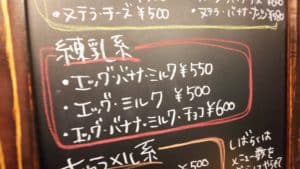 ・ヌテラ・チーズ ¥500
ヌテラ・バナナ・
練乳系
・エッグ・バナナ・ミルク ¥550
・エッグ・ミルク ¥500
・エッグ・バナナ・ミルク・チョコ ¥600
キャラメル系
¥500
しばらくは
メニュー数を